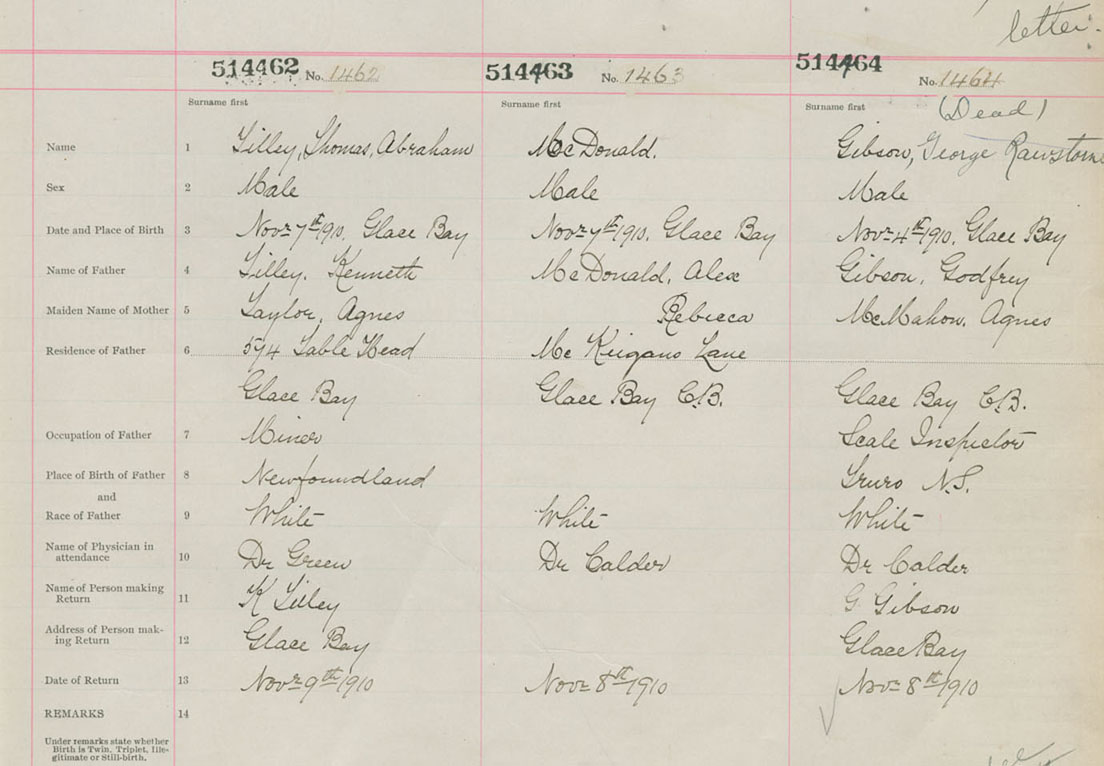 letter.
514462 No. 1462 514463 No. 1463 514464 No. 1464
Surname first Surname first Surname first (Dead)
Name 1 Lilley, Thomas, Abraham McDonald. Gibson, George Rawstorne
Sex 2 Male Male Male
Date and Place of Birth 3 Novr 7th 1910. Glace Bay Novr 7th 1910. Glace Bay Novr 4th 1910. Glace Bay
Name of Father 4 Lilley. Kenneth McDonald, Alex Gibson, Godfrey
Maiden Name of Mother 5 Taylor, Agnes Rebecca McMahon. Agnes
Residence of Father 6 574 Table Head McKeigans Lane
Glace Bay Glace Bay C.B. Glace Bay C.B.
Occupation of Father 7 Miner Scale Inspector
Place of Birth of Father 8 Newfoundland Truro N.S.
and
Race of Father 9 White White White
Name of Physician in
attendance 10 Dr Green Dr Calder Dr Calder
Name of Person making
Return 11 K Lilley G. Gibson
Address of Person mak-
ing Return 12 Glace Bay Glace Bay
Date of Return 13 Novr 9th 1910 Novr 8th 1910 Novr 8th 1910
REMARKS 14
Under remarks state whether
Birth is Twin, Triplet, Ille-
gitimate or Still-birth.